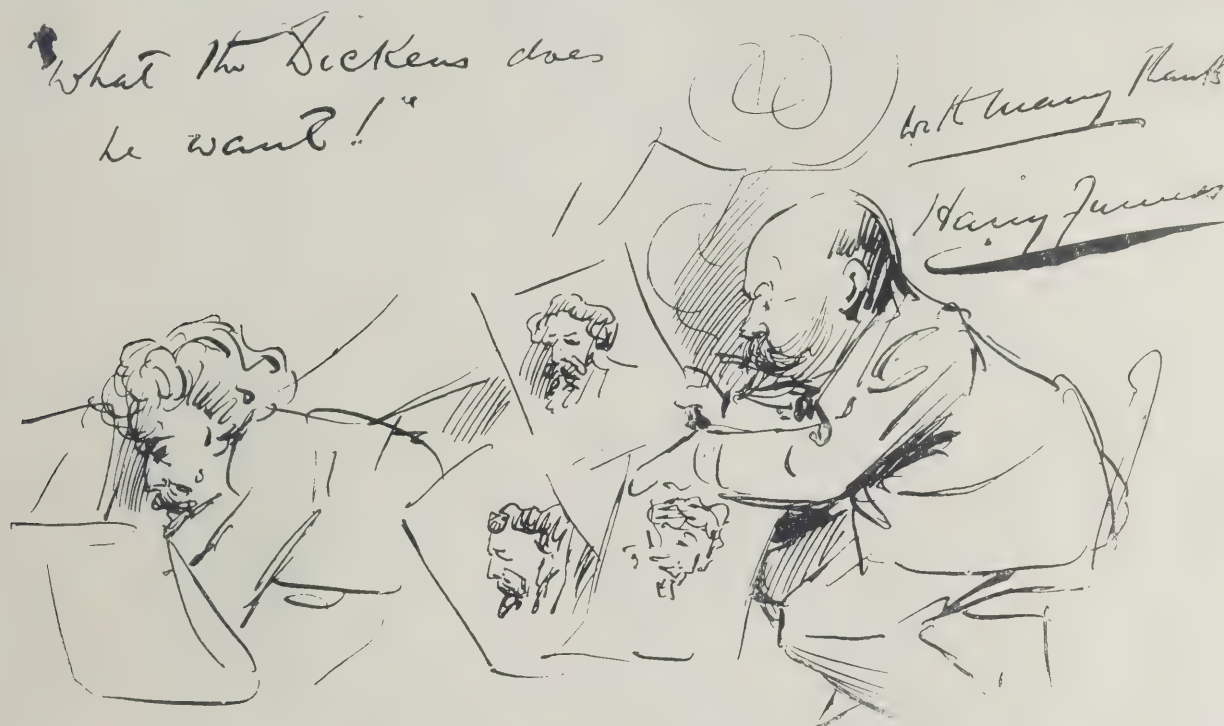 "What the Dickens does
he want!"
with many thanks
Harry Furniss